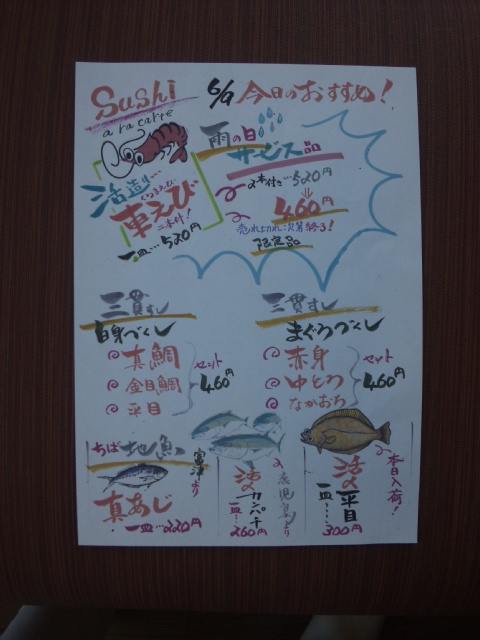 Sushi
a la carte
6/9 今日のおすすめ!
雨の日
サービス品
2本付き…520円
460円
売れ切れ次第終了!
限定品
活造り…
くるまえび
車えび
二本付!
一皿…520円
三貫すし
白身づくし
真鯛
金目鯛
平目
セット
460円
三貫すし
まぐろづくし
赤身
中とろ
なかおち
セット
460円
ちば地魚
富津より
真あじ
一皿…220円
活〆
カンパチ
鹿児島より
一皿…260円
本日入荷!
活〆
平目
一皿…300円